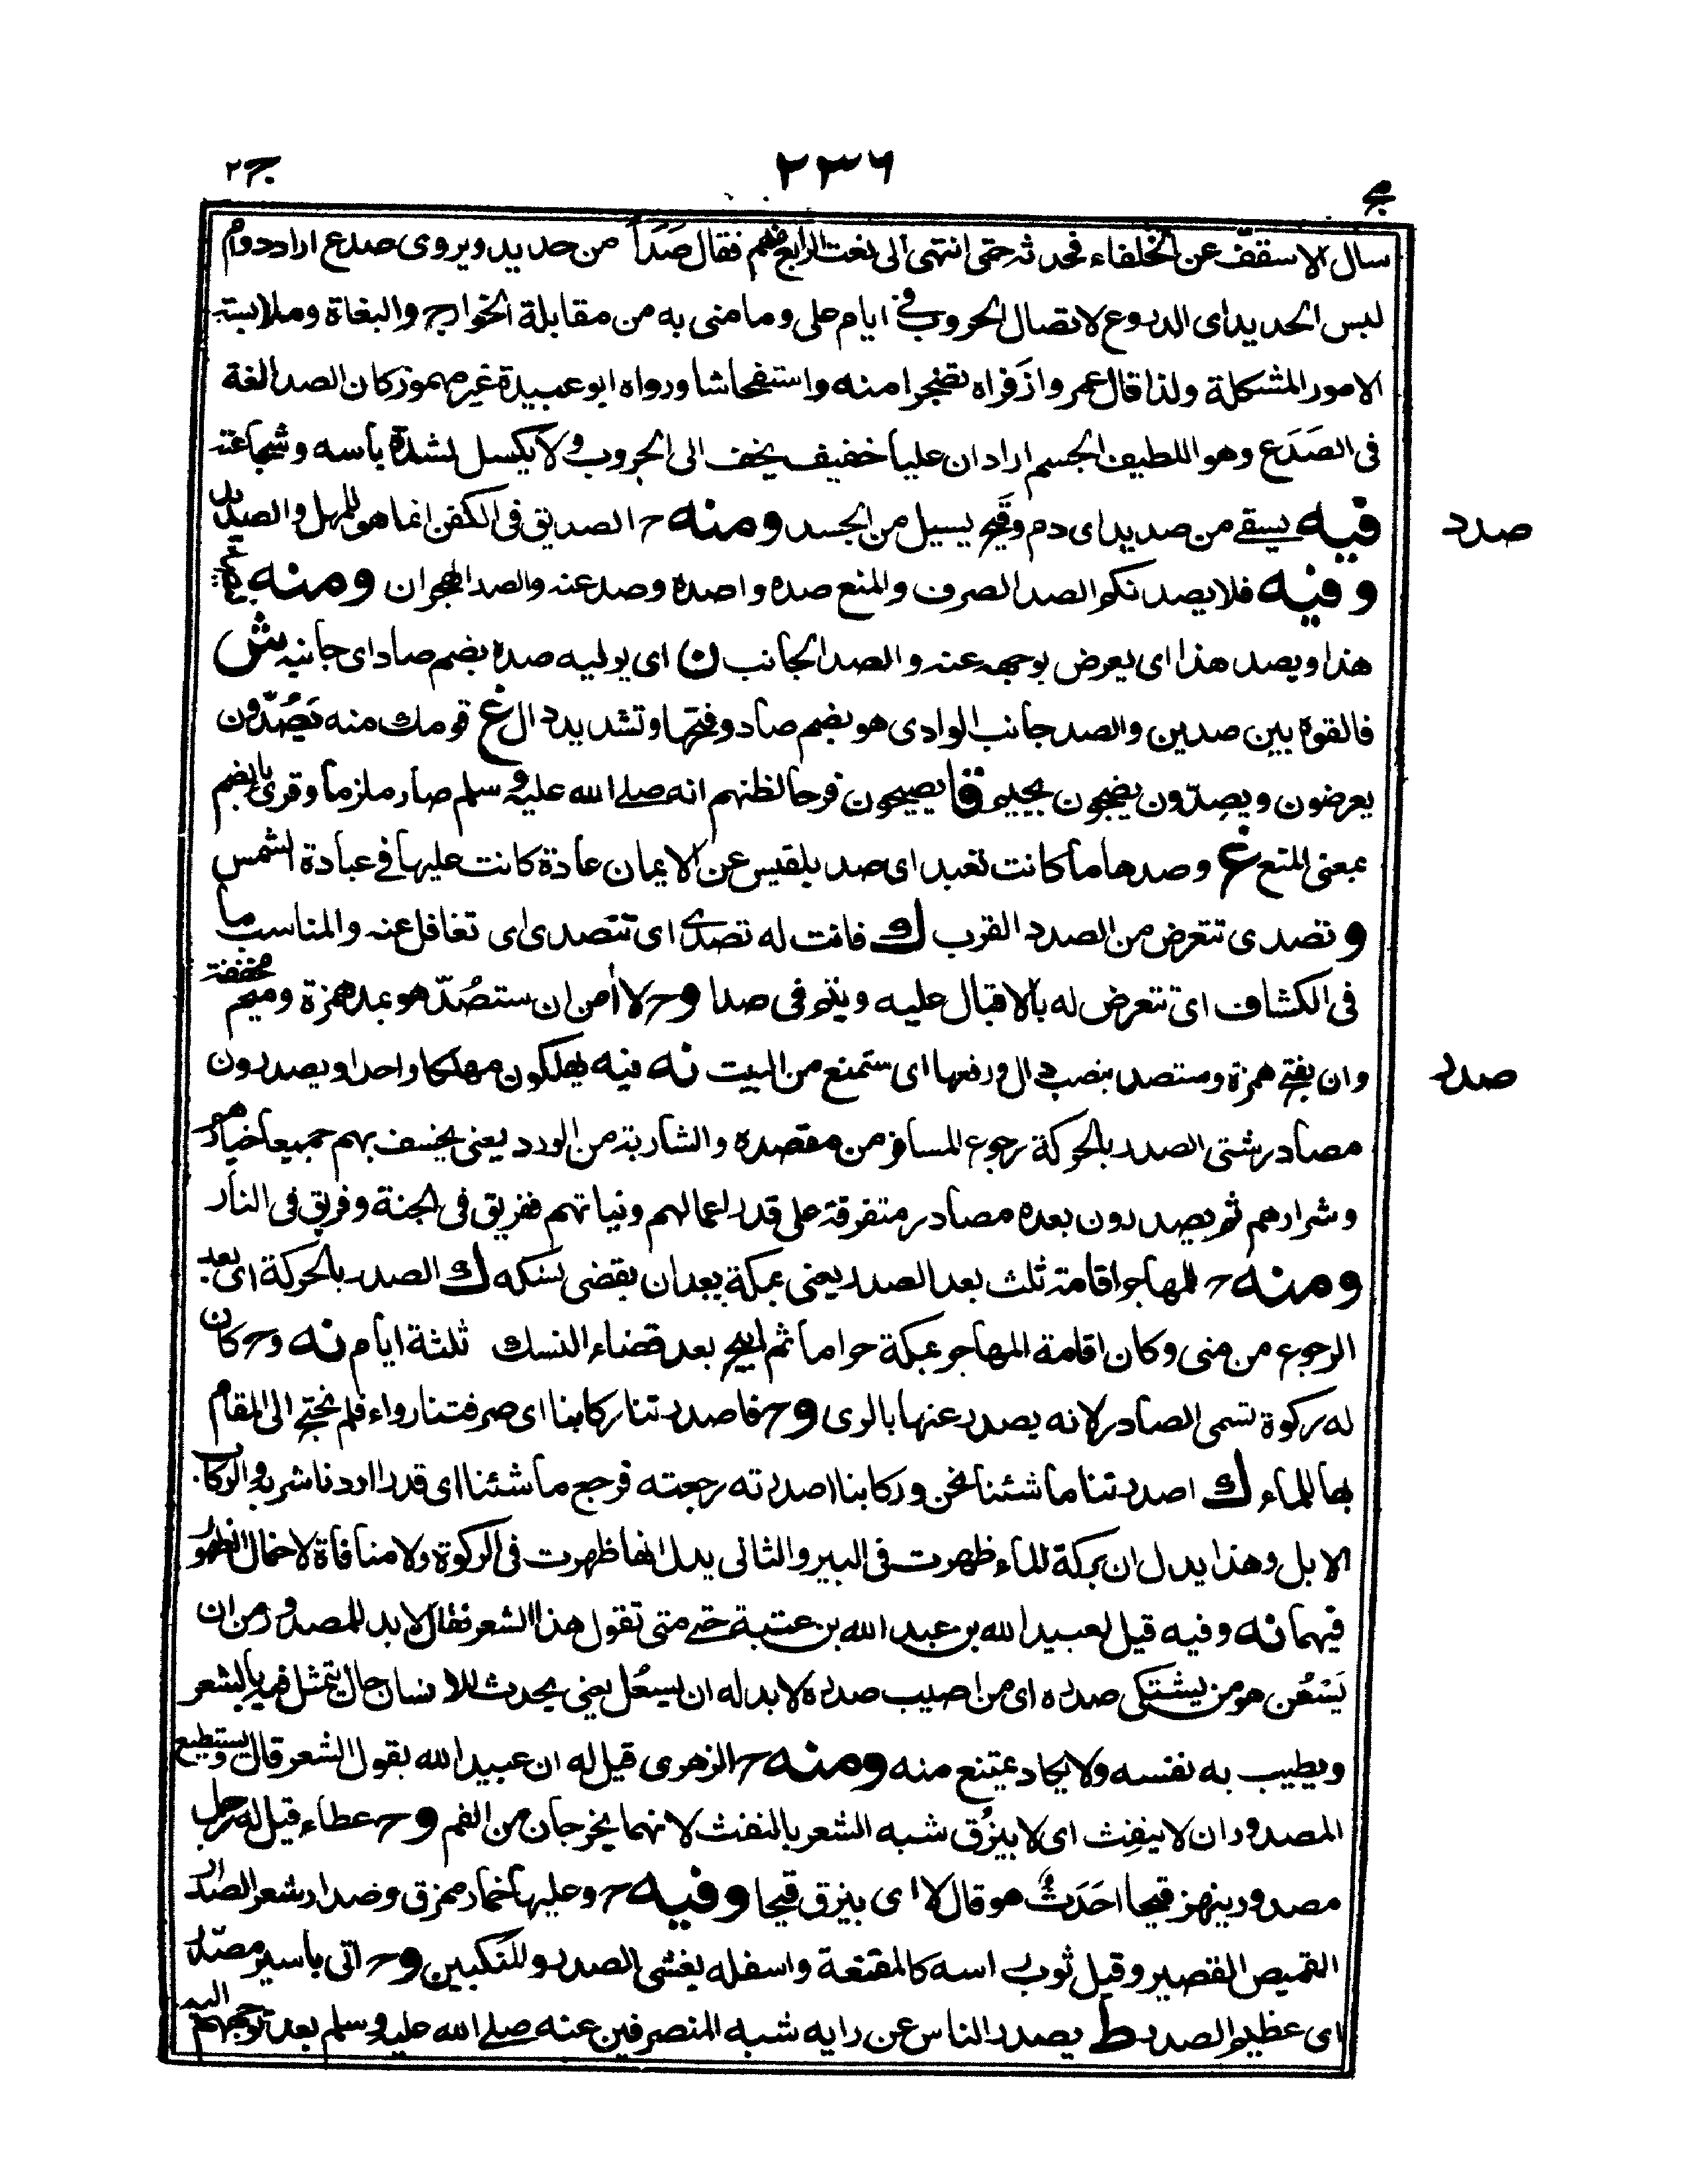 ج ٢
٢٣٦
سال الاسقف عن الخلفاء فحدثه حتى انتهى الى نعت الرابع منهم فقال صَدَأ من حديد ويروى صدع اراد دوام
لبس الحديد اى الدروع لاتصال الحروب فى ايام على وما منى به من مقابلة الخوارج والبغاة وملابسته
الامور المشكلة ولذا قال عمر واذفراه تضجرا منه واستفحاشا ورواه ابو عبيدة غير مهموز كان الصدا لغة
فى الصَدَع وهو اللطيف الجسم اراد ان عليا خفيف يخف الى الحروب ولا يكسل لشدة باسه وشجاعته
صدد
فيه يسقے من صديد اى دم وقَيح يسيل من الجسد ومنه ح الصديق فى الكفن انما هو للمهل والصديد
وفيه فلا يصدنكم الصد الصرف والمنع صده واصده وصد عنه والصد الهجران ومنه
هذا ويصد هذا اى يعرض بوجهه عنه والصد الجانب ن اى يوليه صده بضم صاد اى جانبه ش
فالقوه بين صدين والصد جانب الوادى هو بضم صاد وفتحها وتشديد دال غ قومك منه يَصُدّون
يعرضون ويصِدّون يضجون بجيم قا يصيحون فرحا لظنهم انه صلے الله عليه وسلم صار ملزما وقرئ بالضم
بمعنى المنع غ وصدها ما كانت تعبد اى صد بلقيس عن الايمان عادة كانت عليها فے عبادة الشمس
و تصدى تتعرض من الصدد القرب ك فانت له تصدّے اى تتصدى اى تغافل عنه والمناسب ما
فى الكشاف اى تتعرض له بالاقبال عليه ويتم فى صدا وح لا اٰمن ان ستصُدّ هو بمد همزة وميم مخففة
صدر
وان بفتح همزة وستصد بنصب دال ورفعها اى ستمنع من البيت نه فيه يهلكون مهلكا واحدا ويصدرون
مصادر شتى الصدر بالحركة رجوع المسافر من مقصده والشاربة من الورد يعنى يخسف بهم جميعا خيارهم
وشرارهم ثم يصدرون بعده مصادر متفرقة على قدر اعمالهم ونياتهم ففريق فى الجنة وفريق فى النار
ومنه ح للمهاجر اقامة ثلث بعد الصدر يعنى بمكة بعد ان يقضى نسكه ك الصدر بالحركة اى بعد
الرجوع من منى وكان اقامة المهاجر بمكة حراما ثم ابيح بعد قضاء النسك ثلثة ايام نه وح كان
له ركوة تسمى الصادر لانه يصدر عنها بالرى وح فاصدرتنا ركابنا اى صرفتنا رواء فلم نحتج الى المقام
بها للماء ك اصدرتنا ما شئنا نحن وركابنا اصدرته رجعته فرجع ما شئنا اى قدر اردنا شربه والركاب
الابل وهذا يدل ان بركة الماء ظهرت فى البير والثانى يدل انها ظهرت فى الركوة ولا منافاة لاحتمال الظهور
فيهما نه وفيه قيل لعبيد الله بن عبد الله بن عتبة حتے متى تقول هذا الشعر فقال لابد للمصدور من ان
يَسْعُل هو من يشتكى صدره اى من اصيب صدره لابد له ان يسعُل يعنى يحدث للانسان حال يتمثل فيه بالشعر
ويطيب به نفسه ولا يكاد يمتنع منه ومنه ح الزهرى قيل له ان عبيد الله يقول الشعر قال ويستطيع
المصدور ان لا ينفِث اى لا يبزُق شبه الشعر بالنفث لانهما يخرجان من الفم وح عطاء قيل له رجل
مصدور ينهز قيحا احَدَثٌ هو قال لا اى يبزق قيحا وفيه ح وعليها خمار ممزق وصدار شعر الصدار
القميص القصير وقيل ثوب راسه كالمقنعة واسفله يغشى الصدر والمنكبين وح اتى باسير مصدر
اى عظيم الصدر ط يصدر الناس عن رايه شبه المنصرفين عنه صلے الله عليه وسلم بعد توجههم اليه